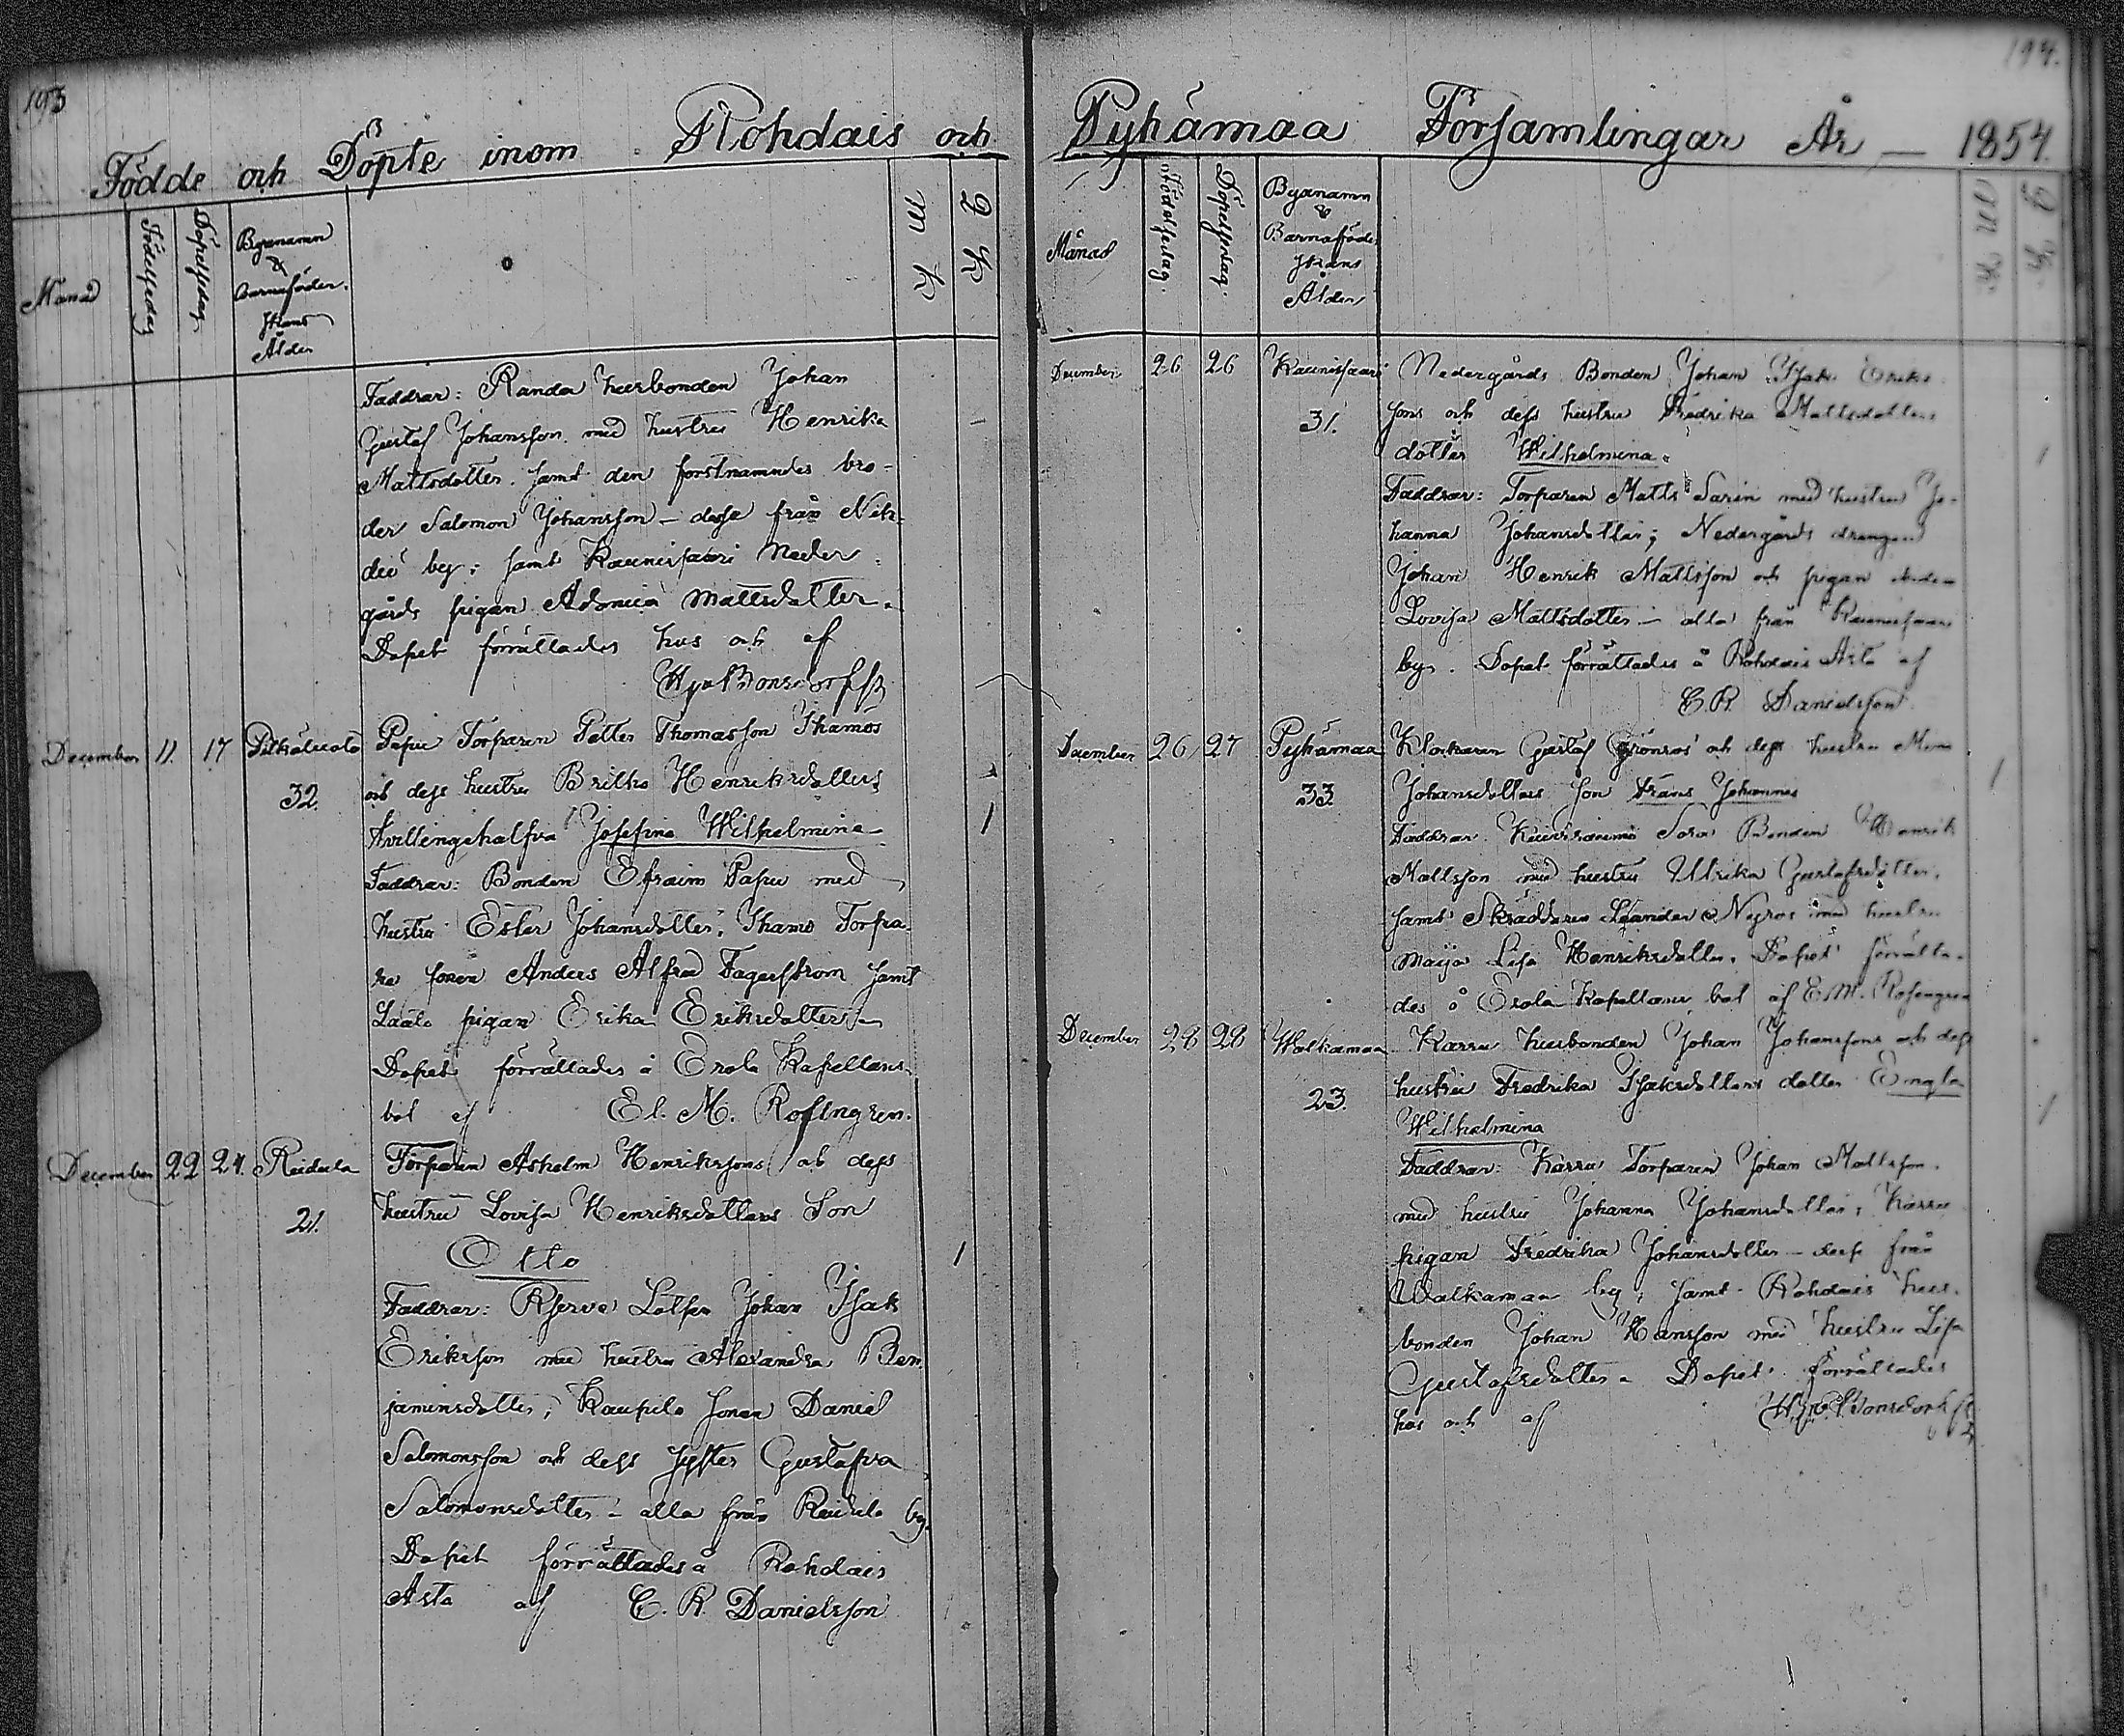 193
Födde och Döpte inom Rohdais och
Månad
Födelsedag
Döpelsedag
Byanamn
&
Barnaföder-
skans
Ålder
m k
q k
Faddrar: Randa husbonden Johan
Gustaf Johansson med hustru Henrika
Mattsdotter samt den förstnämndes bro-
der Salomon Johansson – dessa från
by; samt Kaunissaari Neder-
gårds pigan Mattsdotter.
Dopet förrättades hos och af
Hj. v. Bonsdorff
December 11. 17 Pitkäluoto Papu Torparen Petter Thomasson Ihamos
32. och dess hustru Britha Henriksdotters
tvillingehalfva Josefina Wilhelmina 1
Faddrar: Bonden Efraim Papu med
hustru Ester Johansdotter; Ihamo Torpa-
re sonen Anders Alfred Fagerström samt
Laato pigan Erika Eriksdotter –
Dopet förrättades å Erola Kapellans
bol af El. M. Rosengren.
December 22 24. Reidula Torparen Anshelm Henrikssons och dess
21. hustru Lovisa Henriksdotters Son
Otto 1
Faddrar: Reserve Lotsen Johan Isak
Eriksson med hustru Alexandra Ben-
jaminsdotter; Kaupila sonen Daniel
Salomonsson och dess syster Gustafva
Salomonsdotter – alla från Reidula by.
Dopet förrättades å Rohdais
Asta af C. R. Danielsson
194.
Pyhämaa Församlingar År — 1854.
Månad
Födelsedag.
Döpelsedag.
Byanamn
&
Barnaföder-
skans
Ålder
m k
q k
December 26 26 Kaunissaari Nedergårds Bonden Johan Isak Eriks-
31. sons och dess hustru Fredrika Mattsdotters
dotter Wilhelmina. 1
Faddrar: Torparen Matts Sarin med hustru Jo-
hanna Johansdotter; Nedergårds drängen
Johan Henrik Mattsson och pigan
Lovisa Mattsdotter – alla från Kaunissaari
by. Dopet förrättades å Rohdais Asta af
C. R. Danielsson
December 26 27 Pyhämaa Klockaren Gustaf Grönroos och dess hustru
33 Johansdotters son Frans Johannes 1
Faddrar: Sora Bonden Henrik
Mattsson med hustru Ulrika Gustafsdotter,
samt Skräddaren Leander Negros med hustru
Maija Lisa Henriksdotter. Dopet förrätta-
des å Erola Kapellans bol af E. M. Rosengren
December 28 28 Walkamaa Karru husbonden Johan Johanssons och dess
23. hustru Fredrika Isaksdotters dotter Engla
Wilhelmina 1
Faddrar: Karru Torparen Johan Mattsson
med hustru Johanna Johansdotter, Karru
pigan Fredrika Johansdotter – dessa från
Walkamaa by; samt Rohdais hus-
bonden Johan Hansson med hustru Lisa
Gustafsdotter. Dopet förrättades
hos och af Hj. v. Bonsdorff